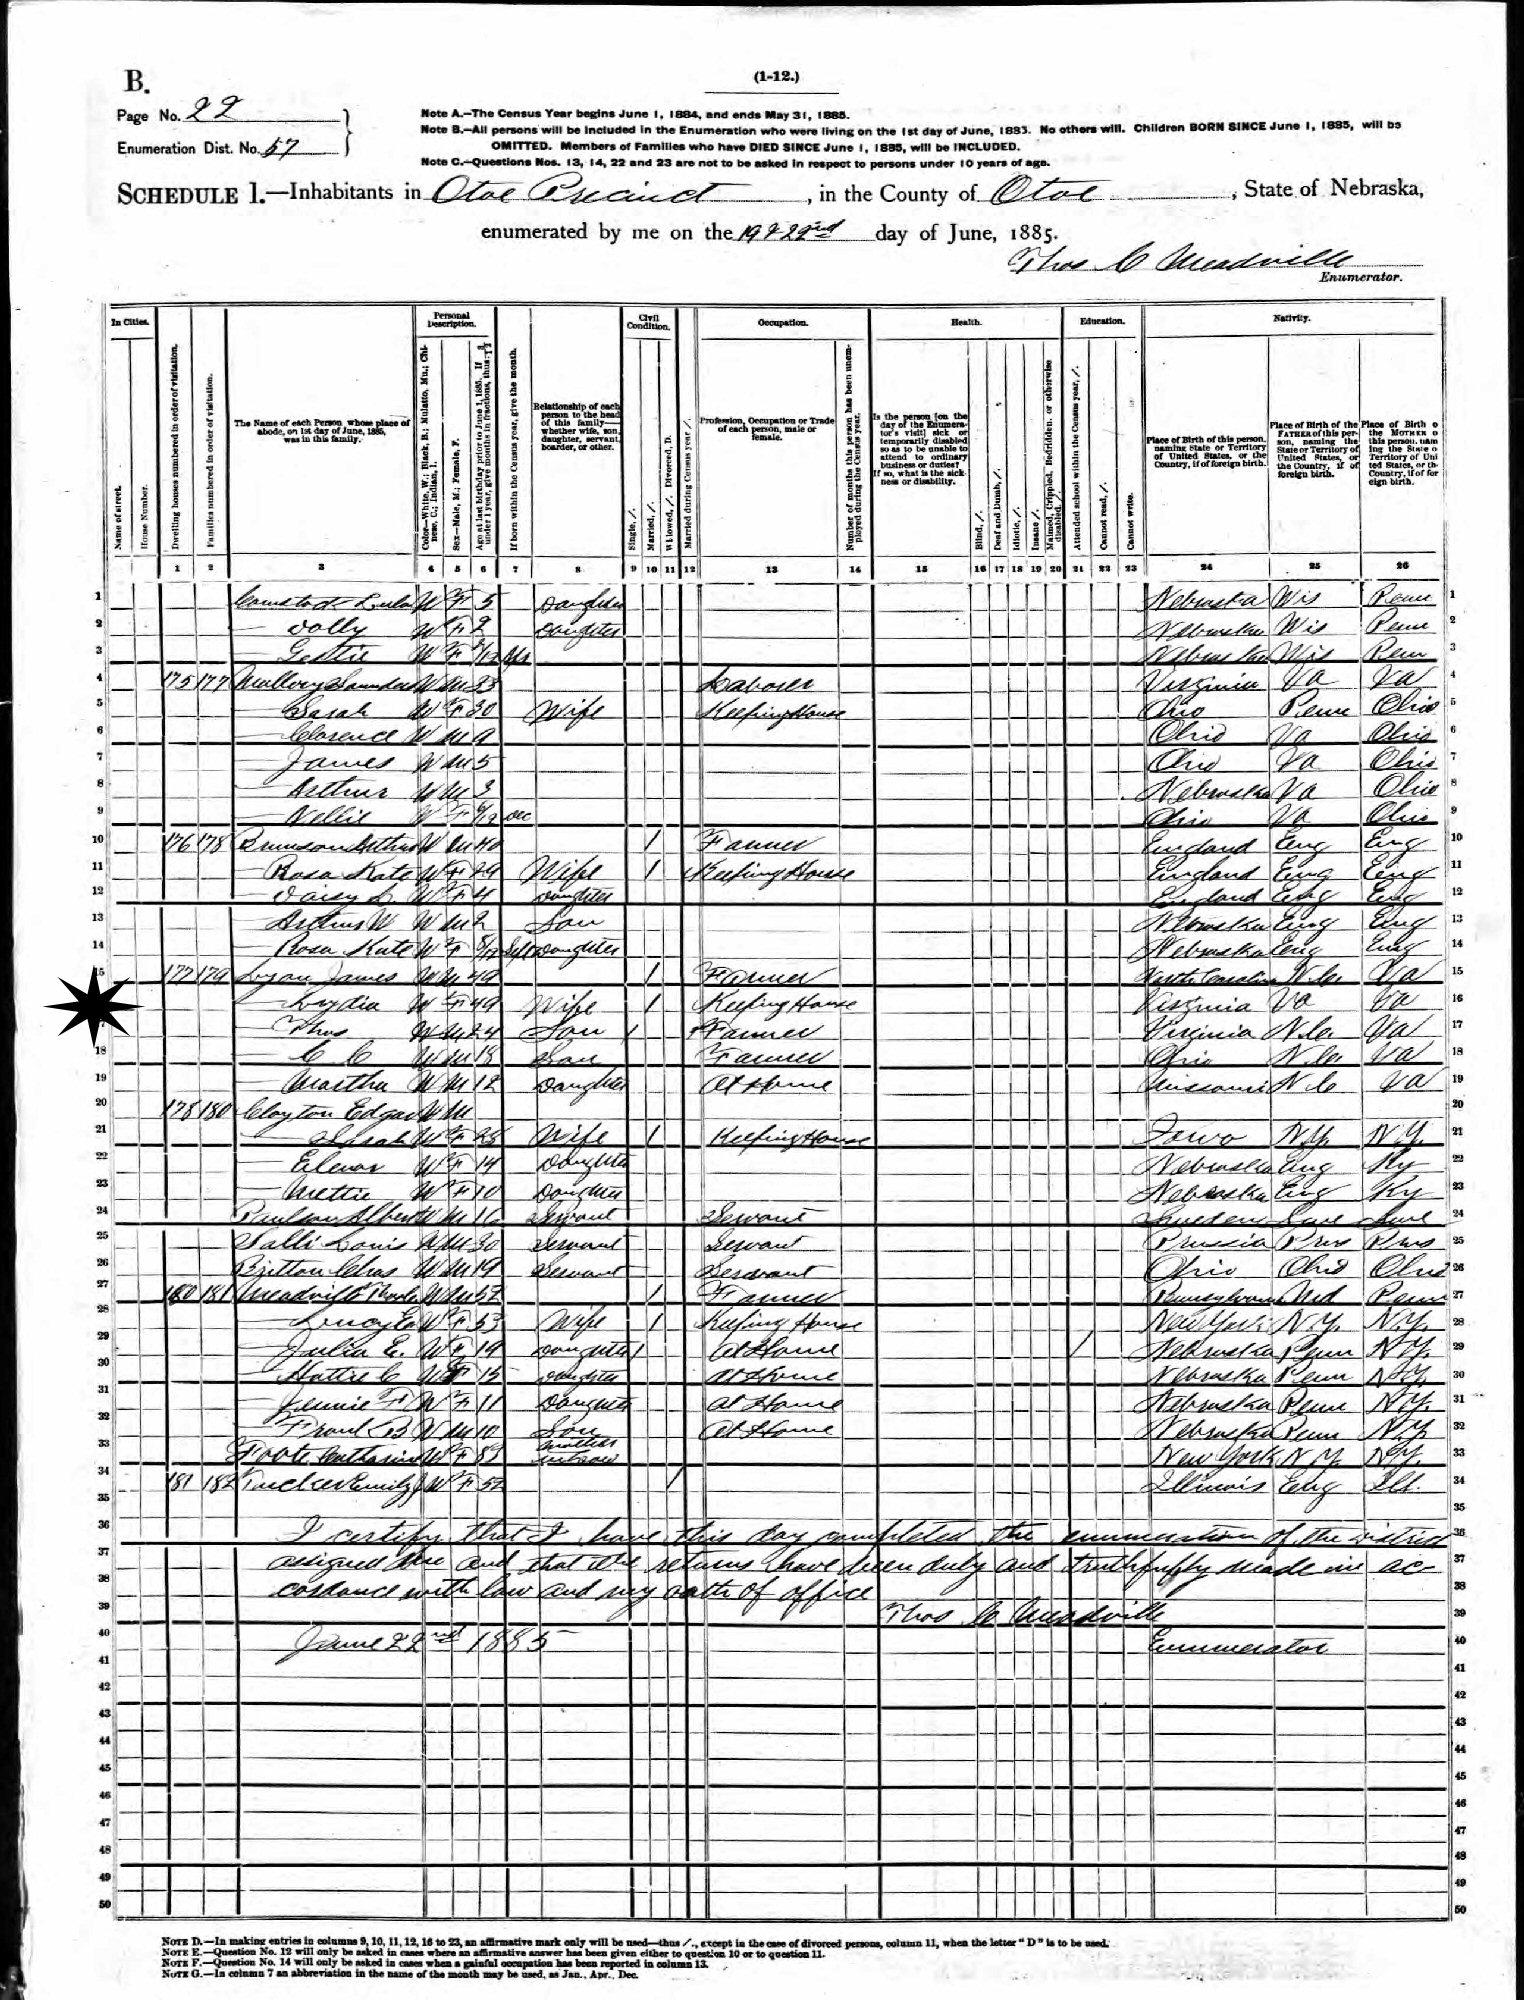 B.
(1-12.)
Page No. 22
Enumeration Dist. No. 57
Note A.—The Census Year begins June 1, 1884, and ends May 31, 1885.
Note B.—All persons will be included in the Enumeration who were living on the 1st day of June, 1885. No others will. Children BORN SINCE June 1, 1885, will be
OMITTED. Members of Families who have DIED SINCE June 1, 1885, will be INCLUDED.
Note C.—Questions Nos. 13, 14, 22 and 23 are not to be asked in respect to persons under 10 years of age.
SCHEDULE 1.—Inhabitants in Otoe Precinct, in the County of Otoe, State of Nebraska,
enumerated by me on the 19 & 22nd day of June, 1885.
Thos C Meadville
Enumerator.
In Cities. Personal Description. Civil Condition. Occupation. Health. Education. Nativity.
Name of street.
House Number.
Dwelling houses numbered in order of visitation.
Families numbered in order of visitation.
The Name of each Person whose place of abode, on 1st day of June, 1885, was in this family.
Color—White, W.; Black, B.; Mulatto, Mu.; Chinese, C.; Indian, I.
Sex—Male, M.; Female, F.
Age at last birthday prior to June 1, 1885. If under 1 year, give months in fractions, thus: 3/12
If born within the Census year, give the month.
Relationship of each person to the head of this family—whether wife, son, daughter, servant, boarder, or other.
Single, /.
Married, /.
Widowed, /. Divorced, D.
Married during Census year /.
Profession, Occupation or Trade of each person, male or female.
Number of months this person has been unemployed during the Census year.
Is the person [on the day of the Enumerator's visit] sick or temporarily disabled so as to be unable to attend to ordinary business or duties? If so, what is the sickness or disability.
Blind, /.
Deaf and Dumb, /.
Idiotic, /.
Insane /.
Maimed, Crippled, Bedridden, or otherwise disabled, /.
Attended school within the Census year, /.
Cannot read, /.
Cannot write.
Place of Birth of this person, naming State or Territory of United States, or the Country, if of foreign birth.
Place of Birth of the FATHER of this person, naming the State or Territory of United States, or the Country, if of foreign birth.
Place of Birth o the MOTHER o this person, nam ing the State o Territory of Uni ted States, or th Country, if of for eign birth.
1 2 3 4 5 6 7 8 9 10 11 12 13 14 15 16 17 18 19 20 21 22 23 24 25 26
1 Comstock Lula W F 5 Daughter Nebraska Wis Penn 1
2 — Dolly W F 2 Daughter Nebraska Wis Penn 2
3 — Gertie W F /12 Apr Nebraska Wis Penn 3
4 175 177 Mallory Saunders W M 33 Laborer Virginia VA VA 4
5 — Sarah W F 30 Wife Keeping House Ohio Penn Ohio 5
6 — Clarence W M 9 Ohio VA Ohio 6
7 — James W M 5 Ohio VA Ohio 7
8 — Arthur W M 3 Nebraska VA Ohio 8
9 — Nellie W F 6/12 Dec Ohio VA Ohio 9
10 176 178 Arthur W M 40 / Farmer England Eng Eng 10
11 — Rosa Kate W F 29 Wife / Keeping House England Eng Eng 11
12 — Daisy L. W F 4 Daughter England Eng Eng 12
13 — Arthur W W M 2 Son Nebraska Eng Eng 13
14 — Rosa Kate W F 8/12 Sept Daughter Nebraska Eng Eng 14
15 177 179 Lyon James W M 49 / Farmer North Carolina N.C. VA 15
— Lydia W F 49 Wife / Keeping House Virginia VA VA 16
— Thos W M 24 Son / Farmer Virginia N.C. VA 17
18 — C C W M 18 Son Farmer Ohio N.C. VA 18
19 — Martha W M 12 Daughter At Home Missouri N.C VA 19
20 178 180 Clayton Edgar W M 20
21 — Sarah W F 28 Wife / Keeping House Iowa N.Y. N.Y. 21
22 — Elenor W F 14 Daughter Nebraska Eng Ky 22
23 — Mettie W F 10 Daughter Nebraska Eng Ky 23
24 Paulson Albert W M 16 Servant Servant Sweden Swe Swe 24
25 Salli Louis W M 30 Servant Servant Prussia Prus Prus 25
26 Britton Chas W M 19 Servant Servant Ohio Ohio Ohio 26
27 180 181 Meadville Thos C W M 52 / Farmer Pennsylvania Md Penn 27
28 — Lucy E W F 53 Wife / Keeping House New York N.Y. N.Y. 28
29 — Julia E. W F 19 Daughter / At Home / Nebraska Penn N.Y. 29
30 — Hattie C W F 15 Daughter At Home Nebraska Penn N.Y. 30
31 — Jennie F W F 11 Daughter At Home Nebraska Penn N.Y. 31
32 — Frank B W M 10 Son At Home Nebraska Penn N.Y 32
33 Foote Catharine W F 83 Mother in law New York N Y N.Y. 33
34 181 182 Tucker Emily J W F 52 / Illinois Eng Ill. 34
35 35
36 I certify that I have this day completed the enumeration of the District 36
37 assigned me and that the returns have been duly and truthfully made in ac- 37
38 cordance with law and my oath of office 38
39 Thos C Meadville 39
40 June 22nd 1885 Enumerator 40
41 41
42 42
43 43
44 44
45 45
46 46
47 47
48 48
49 49
50 50
NOTE D.—In making entries in columns 9, 10, 11, 12, 16 to 23, an affirmative mark only will be used—thus /., except in the case of divorced persons, column 11, when the letter "D" is to be used.
NOTE E.—Question No. 12 will only be asked in cases where an affirmative answer has been given either to question 10 or to question 11.
NOTE F.—Question No. 14 will only be asked in cases when a gainful occupation has been reported in column 13.
NOTE G.—In column 7 an abbreviation in the name of the month may be used, as Jan., Apr., Dec.